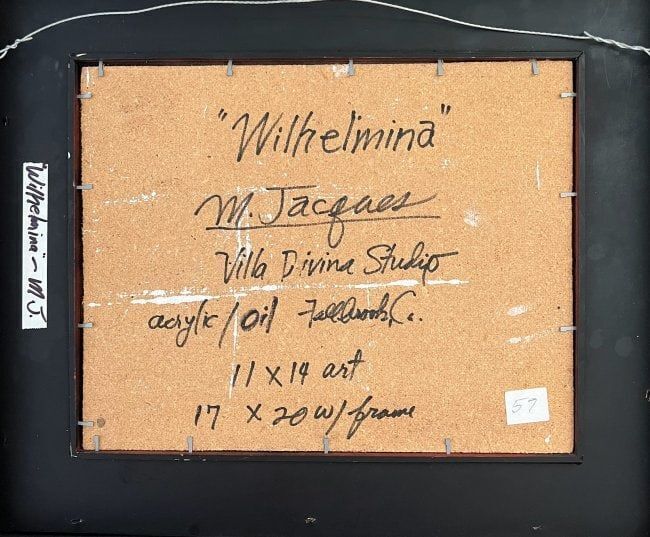 "Wilhelmina"
M. Jacques
Villa Divina Studio
acrylic/oil Fallbrook, Ca.
11 X 14 art
17 X 20 w/ frame
57
"Wilhelmina" ~ M.J.